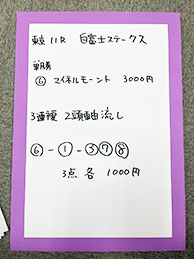 東京11R 白富士ステークス
単勝
⑥ マイネルモーント 3000円
3連複 2頭軸流し
⑥-①-③⑦⑧
3点 各 1000円